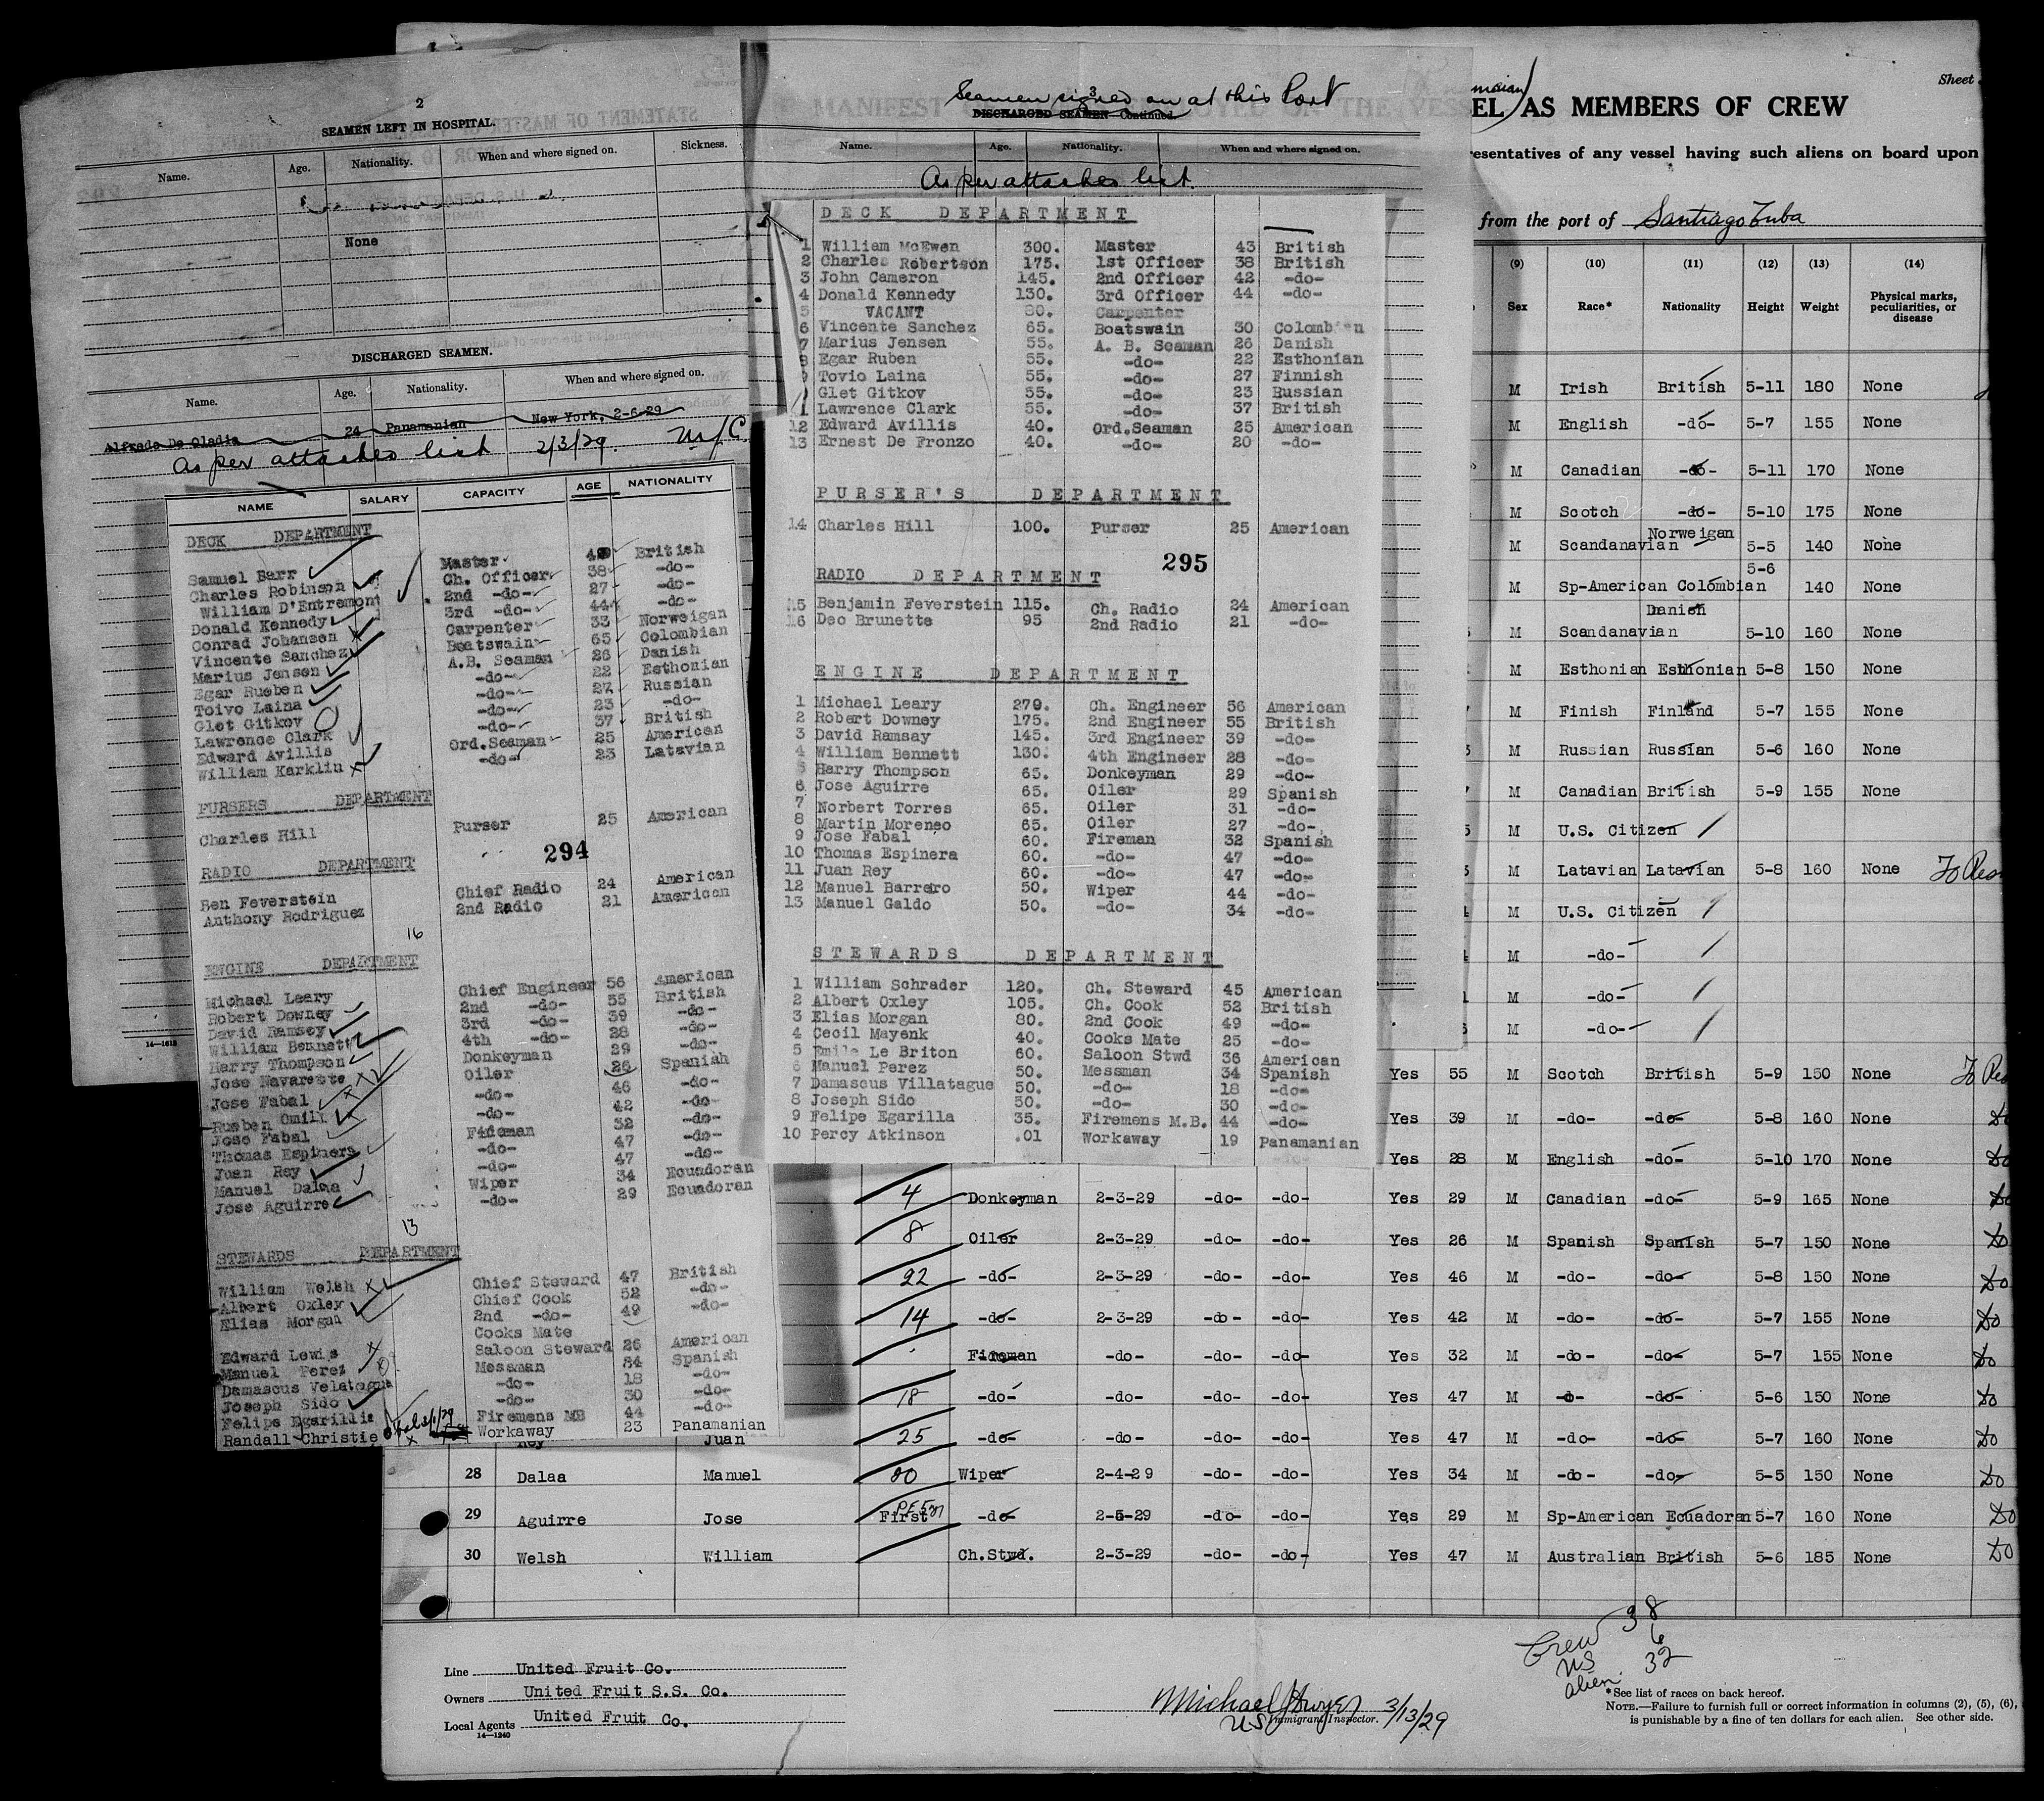 2
SEAMEN LEFT IN HOSPITAL.
Name. Age. Nationality. When and where signed on. Sickness.
None
DISCHARGED SEAMEN.
Name. Age. Nationality. When and where signed on.
Alfredo De Oladia 24 Panamanian New York, 2-6-29
As per attached list 2/3/29.
NAME SALARY CAPACITY AGE NATIONALITY
DECK DEPARTMENT
Samuel Barr Master British
Charles Robinson Ch. Officer 38 -do-
William D'Entremont 2nd -do- 27 -do-
Donald Kennedy 3rd -do- 44 -do-
Conrad Johansen Carpenter 33 Norweigan
Vincente Sanchez Boatswain 65 Colombian
Marius Jensen A.B. Seaman 26 Danish
Egar Rueben -do- 22 Esthonian
Toivo Laina -do- 27 Russian
Glet Gitkov -do- 23 -do-
Lawrence Clark -do- 37 British
Edward Avillis Ord.Seaman 25 American
William Karklin -do- 23 Latavian
PURSERS DEPARTMENT
Charles Hill Purser 25 American
294
RADIO DEPARTMENT
Ben Feverstein Chief Radio 24 American
Anthony Rodriguez 2nd Radio 21 American
16
ENGINE DEPARTMENT
Michael Leary Chief Engineer 56 American
Robert Downey 2nd -do- 55 British
David Ramsey 3rd -do- 39 -do-
William Bennett 4th -do- 28 -do-
Harry Thompson Donkeyman 29 -do-
Jose Navarette Oiler 26 Spanish
Jose Fabal -do- 46 -do-
Rueben Omill -do- 42 -do-
Jose Fabal Fireman 32 -do-
Thomas Espinera -do- 47 -do-
Juan Rey -do- 47 -do-
Manuel Dalaa Wiper 34 Ecuadoran
Jose Aguirre -do- 29 Ecuadoran
13
STEWARDS DEPARTMENT
William Welsh Chief Steward 47 British
Albert Oxley Chief Cook 52 -do-
Elias Morgan 2nd -do- 49 -do-
Cooks Mate
Edward Lewis Saloon Steward 26 American
Manuel Perez Messman 34 Spanish
Damascus Velatogue -do- 18 -do-
Joseph Sido -do- 30 -do-
Felipe Egarillia Firemens MB 44 -do-
Randall Christie Workaway 23 Panamanian
14—1613
3
Seamen signed on at this Port
DISCHARGED SEAMEN—Continued.
Name. Age. Nationality. When and where signed on.
As per attached list.
DECK DEPARTMENT
1 William McEwen 300. Master 43 British
2 Charles Robertson 175. 1st Officer 38 British
3 John Cameron 145. 2nd Officer 42 -do-
4 Donald Kennedy 130. 3rd Officer 44 -do-
5 VACANT 80. Carpenter
6 Vincente Sanchez 65. Boatswain 30 Colombian
7 Marius Jensen 55. A. B. Seaman 26 Danish
8 Egar Ruben 55. -do- 22 Esthonian
9 Tovio Laina 55. -do- 27 Finnish
Glet Gitkov 55. -do- 23 Russian
Lawrence Clark 55. -do- 37 British
12 Edward Avillis 40. Ord.Seaman 25 American
13 Ernest De Fronzo 40. -do- 20 -do-
PURSER'S DEPARTMENT
14 Charles Hill 100. Purser 25 American
295
RADIO DEPARTMENT
15 Benjamin Feverstein 115. Ch. Radio 24 American
16 Deo Brunette 95 2nd Radio 21 -do-
ENGINE DEPARTMENT
1 Michael Leary 270. Ch. Engineer 56 American
2 Robert Downey 175. 2nd Engineer 55 British
3 David Ramsay 145. 3rd Engineer 39 -do-
4 William Bennett 130. 4th Engineer 28 -do-
5 Harry Thompson 65. Donkeyman 29 -do-
6 Jose Aguirre 65. Oiler 29 Spanish
7 Norbert Torres 65. Oiler 31 -do-
8 Martin Moreneo 65. Oiler 27 -do-
9 Jose Fabal 60. Fireman 32 Spanish
10 Thomas Espinera 60. -do- 47 -do-
11 Juan Rey 60. -do- 47 -do-
12 Manuel Barrero 50. Wiper 44 -do-
13 Manuel Galdo 50. -do- 34 -do-
STEWARDS DEPARTMENT
1 William Schrader 120. Ch. Steward 45 American
2 Albert Oxley 105. Ch. Cook 52 British
3 Elias Morgan 80. 2nd Cook 49 -do-
4 Cecil Mayenk 40. Cooks Mate 25 -do-
5 Emile Le Briton 60. Saloon Stwd 36 American
6 Manuel Perez 50. Messman 34 Spanish
7 Damascus Villatague 50. -do- 18 -do-
8 Joseph Sido 50. -do- 30 -do-
9 Felipe Egarilla 35. Firemens M.B. 44 -do-
10 Percy Atkinson .01 Workaway 19 Panamanian
Sheet
EL AS MEMBERS OF CREW
resentatives of any vessel having such aliens on board upon
from the port of Santiago Cuba
(9) (10) (11) (12) (13) (14)
Sex Race* Nationality Height Weight Physical marks, peculiarities, or disease
M Irish British 5-11 180 None
M English -do- 5-7 155 None
M Canadian -do- 5-11 170 None
M Scotch -do- 5-10 175 None
M Scandanavian Norweigan 5-5 140 None
M Sp-American Colombian 5-6 140 None
M Scandanavian Danish 5-10 160 None
M Esthonian Esthonian 5-8 150 None
M Finish Finland 5-7 155 None
M Russian Russian 5-6 160 None
M Canadian British 5-9 155 None
M U.S. Citizen
M Latavian Latavian 5-8 160 None
M U.S. Citizen
M -do-
M -do-
M -do-
Yes 55 M Scotch British 5-9 150 None
Yes 39 M -do- -do- 5-8 160 None Do
Yes 28 M English -do- 5-10 170 None Do
4 Donkeyman 2-3-29 -do- -do- Yes 29 M Canadian -do- 5-9 165 None Do
8 Oiler 2-3-29 -do- -do- Yes 26 M Spanish Spanish 5-7 150 None Do
22 -do- 2-3-29 -do- -do- Yes 46 M -do- -do- 5-8 150 None Do
14 -do- 2-3-29 -do- -do- Yes 42 M -do- -do- 5-7 155 None Do
Fireman -do- -do- -do- Yes 32 M -do- -do- 5-7 155 None Do
18 -do- -do- -do- -do- Yes 47 M -do- 5-6 150 None Do
Rey Juan 25 -do- -do- -do- -do- Yes 47 M -do- -do- 5-7 160 None Do
28 Dalaa Manuel Wiper 2-4-29 -do- -do- Yes 34 M -do- -do- 5-5 150 None Do
29 Aguirre Jose First -do- 2-5-29 -do- -do- Yes 29 M Sp-American Ecuadoran 5-7 160 None Do
30 Welsh William Ch.Stwd. 2-3-29 -do- -do- Yes 47 M Australian British 5-6 185 None Do
Crew 38
US 6
alien 32
Line United Fruit Co.
Owners United Fruit S.S. Co.
Local Agents United Fruit Co.
14—1240
US Immigrant Inspector. 3/13/29
*See list of races on back hereof.
NOTE.—Failure to furnish full or correct information in columns (2), (5), (6),
is punishable by a fine of ten dollars for each alien. See other side.